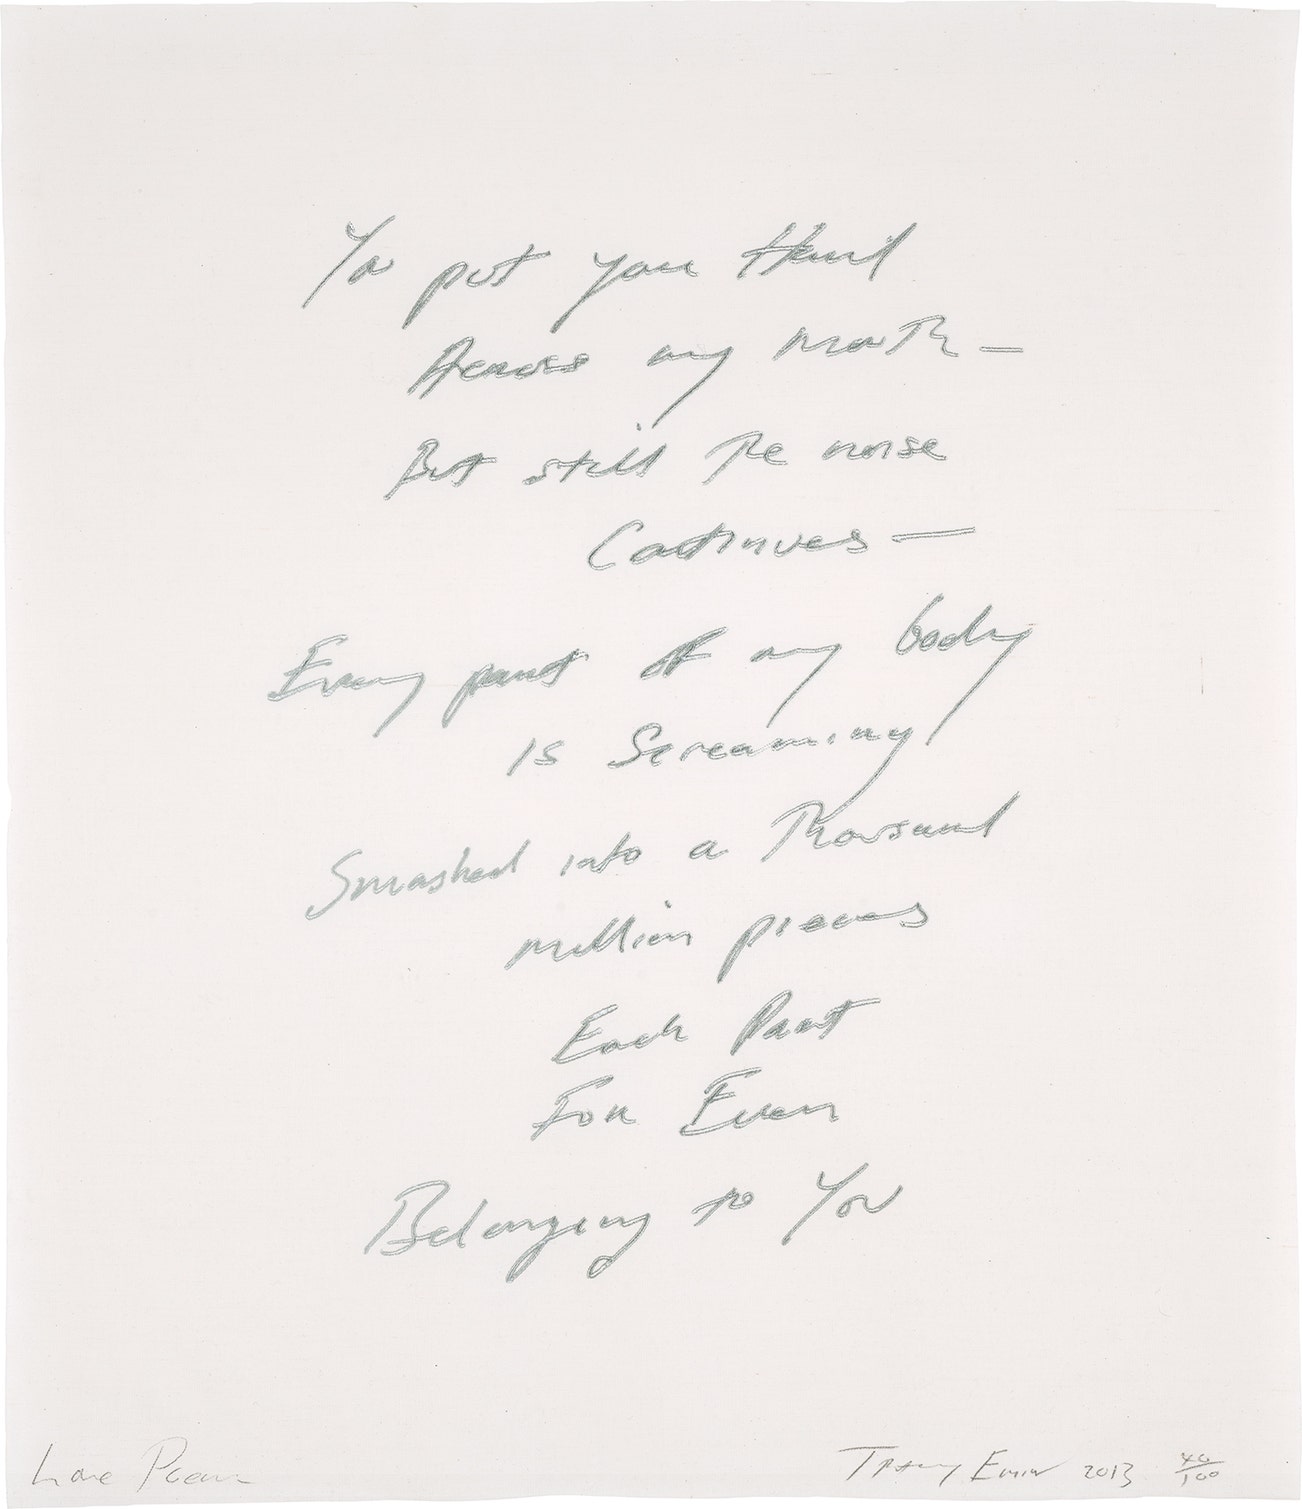 You put your Hand
Across my mouth —
But still the noise
Continues —
Every part of my body
Is Screaming
Smashed into a Thousand
million pieces
Each Part
For Ever
Belonging to You
Love Poem
Tracey Emin 2013 40/100